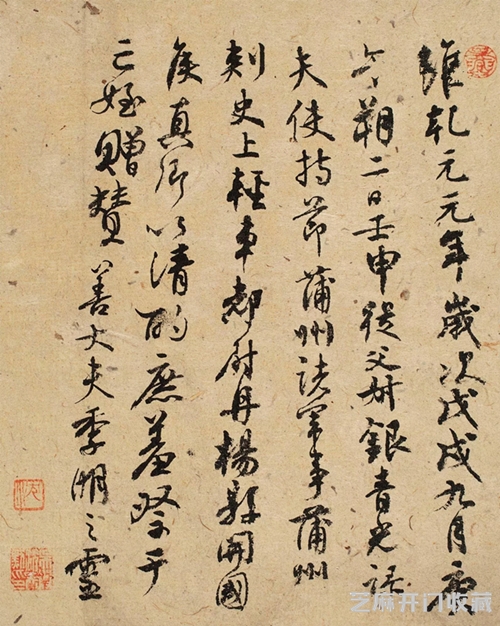 維乾元元年歲次戊戌九月庚
午朔二日壬申從父叔銀青光祿
夫使持節蒲州諸軍事蒲州
刺史上輕車都尉丹楊縣開國
侯真卿以清酌庶羞祭于
亡姪贈贊善大夫季明之靈
芝麻开门收藏